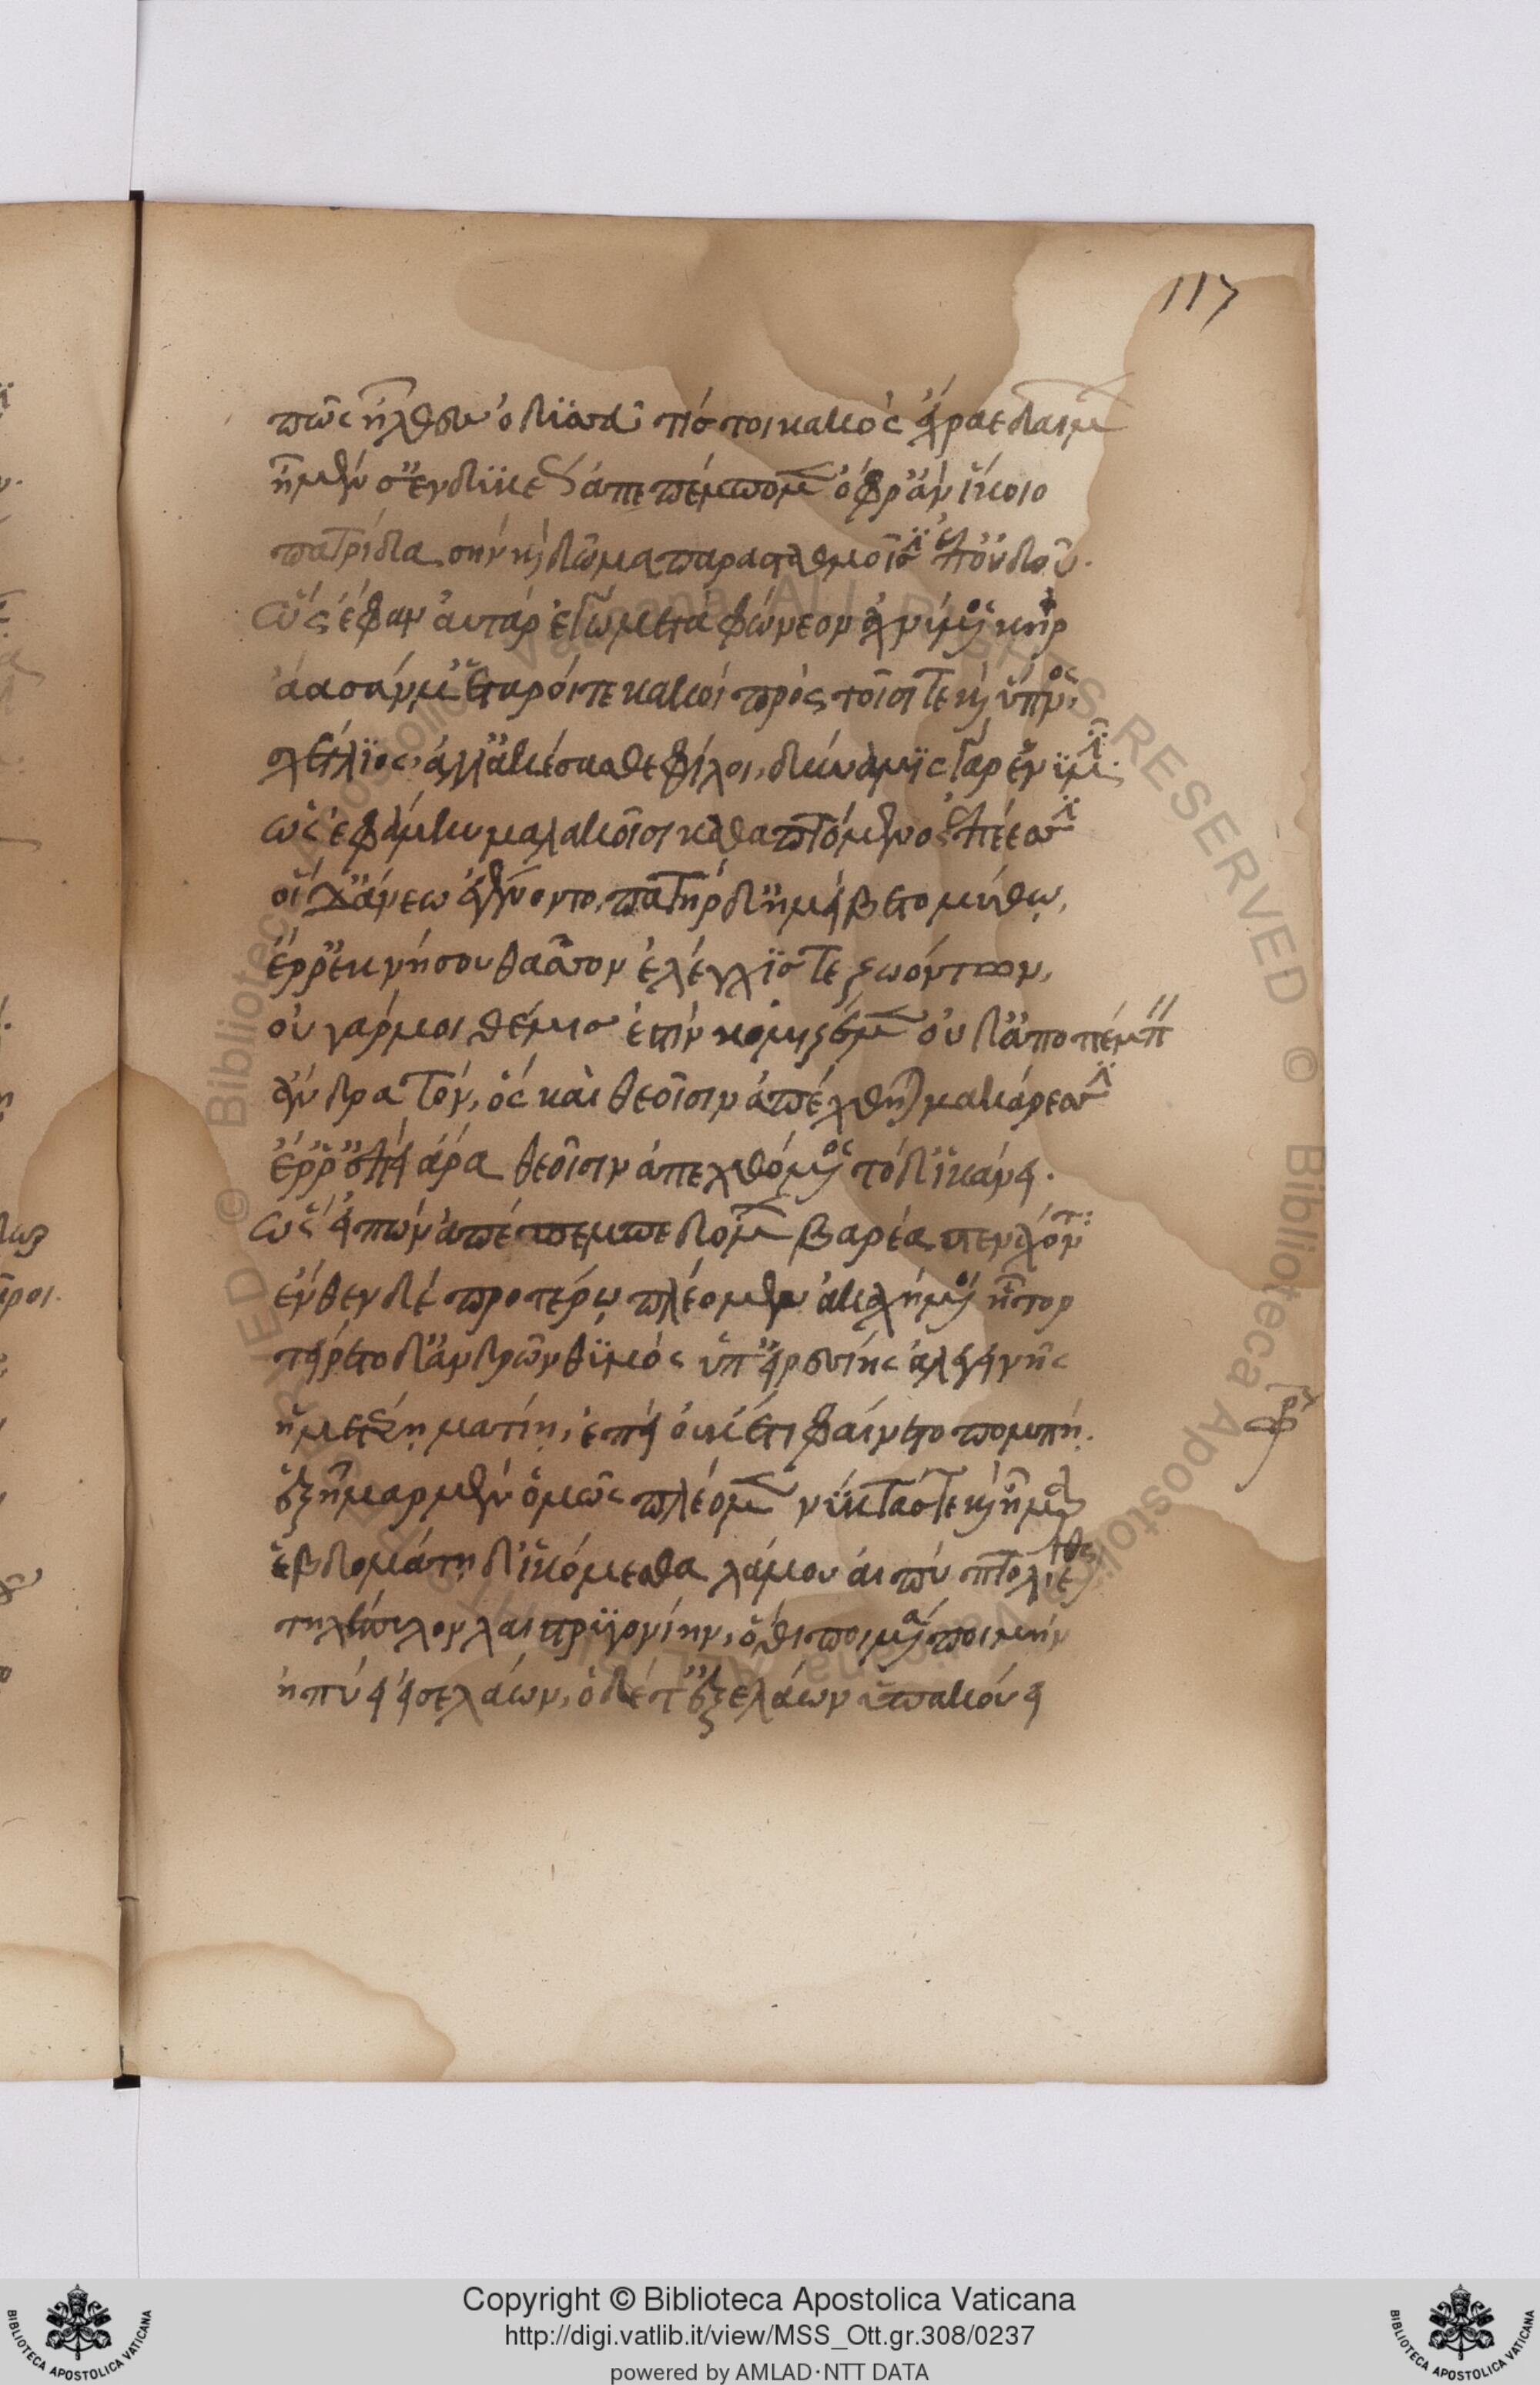 117
πῶς ἦλθες ὀδυσεῦ τίς τοι κακὸς ἔχραε δαίμων
ἦ μέν σ' ἐνδυκέως ἀπεπέμπομεν ὄφρ' ἂν ἵκοιο
πατρίδα σὴν καὶ δῶμα
ὣς ἔφαν αὐτὰρ ἐγὼ μετεφώνεον ἀχνύμενος κῆρ
ἄασάν μ' ἕταροί τε κακοὶ πρὸς τοῖσί τε καὶ ὕπνος
σχέτλιος, ἀλλ' ἀκέσασθε φίλοι, δύναμις γὰρ ἐν ὑμῖν
ὣς ἐφάμην μαλακοῖσι καθαπτόμενος ἐπέεσσι
οἱ δ' ἄνεω ἐγένοντο, πατὴρ δ' ἠμείβετο μύθω,
ἔρρ' ἐκ νήσου θᾶσσον ἐλέγχιστε ζωόντων,
οὐ γάρ μοι θέμις ἐστὶν κομιζέμεν οὐδ' ἀποπέμπειν
ἄνδρα τόν, ὅς καὶ θεοῖσιν ἀπέχθηται μακάρεσσι
ἔρρ' ἐπεὶ ἄρα θεοῖσιν ἀπεχθόμενος τόδ' ἱκάνεις.
ὣς εἰπὼν ἀπέπεμπε δόμων βαρέα στενάχοντα:
ἔνθεν δὲ προτέρω πλέομεν ἀκαχήμενοι ἦτορ
τείρετο δ' ἀνδρῶν θυμὸς ὑπ' εἰρεσίης ἀλεγεινῆς
ἡμετέρῃ ματίῃ, ἐπεὶ οὐκέτι φαίνετο πομπή.
ἑξῆμαρ μὲν ὁμῶς πλέομεν νύκτάς τε καὶ ἦμαρ
ἑβδομάτῃ δ' ἱκόμεσθα λάμου αἰπὺ πτολίεθρον
τηλέπυλον λαιστρυγονίην, ὅθι ποιμένα ποιμὴν
ἠπύει εἰσελάων, ὁ δέ τ' ἐξελάων ὑπακούει
Copyright © Biblioteca Apostolica Vaticana
http://digi.vatlib.it/view/MSS_Ott.gr.308/0237
powered by AMLAD·NTT DATA